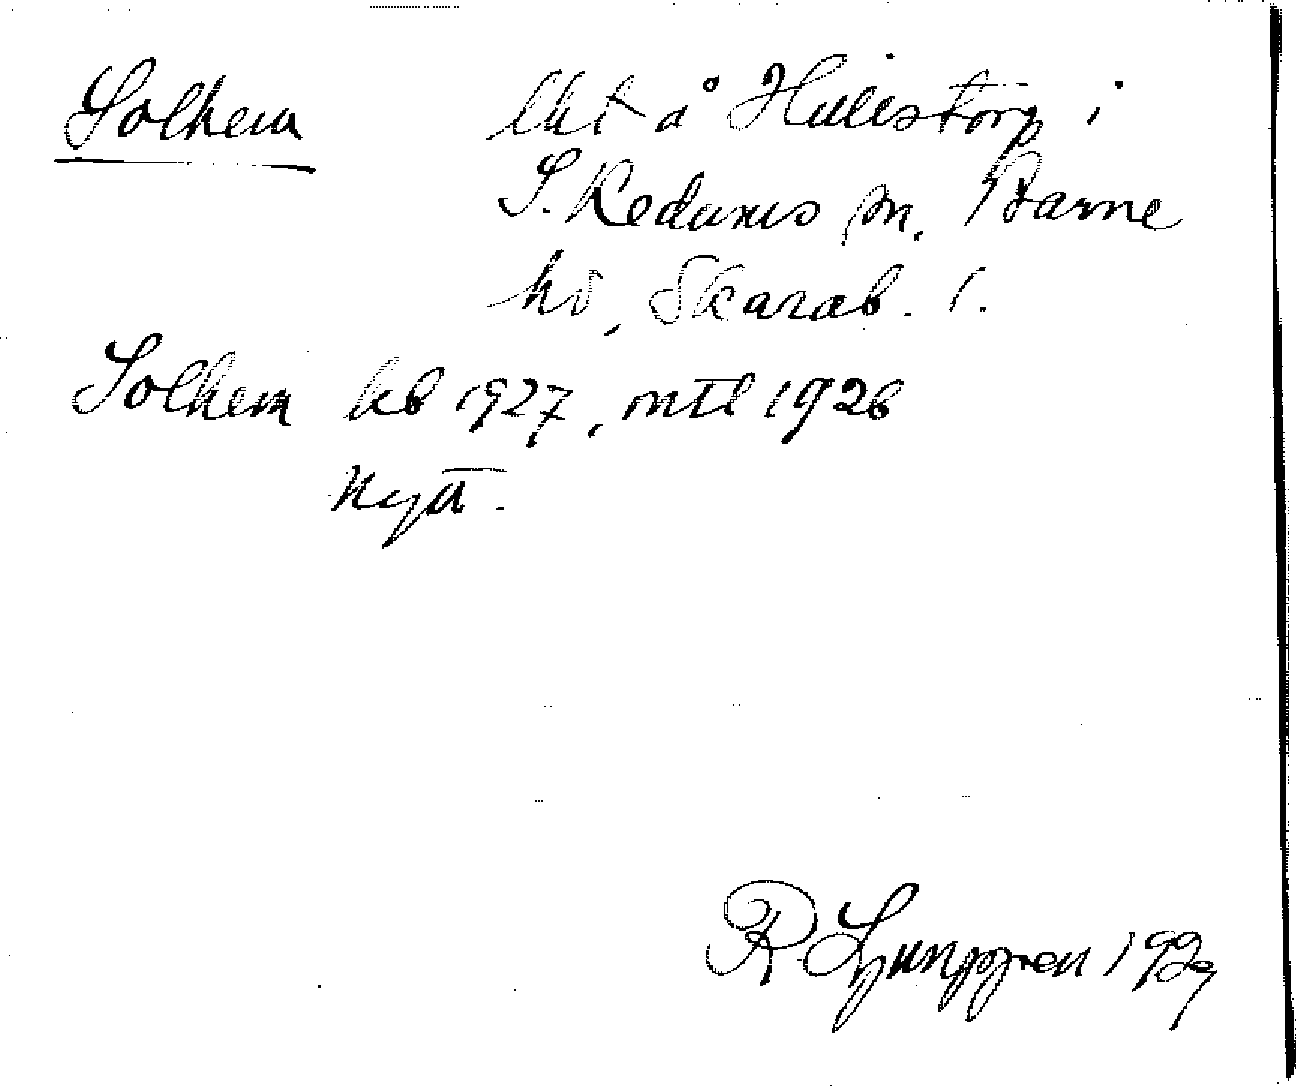 Solhem lht å Hulestorp i
S. Kedums sn. Barne
hd, Skarab. l.
Solhem kb 1927, mtl 1926
Nytt.
R Ljunggren 1929